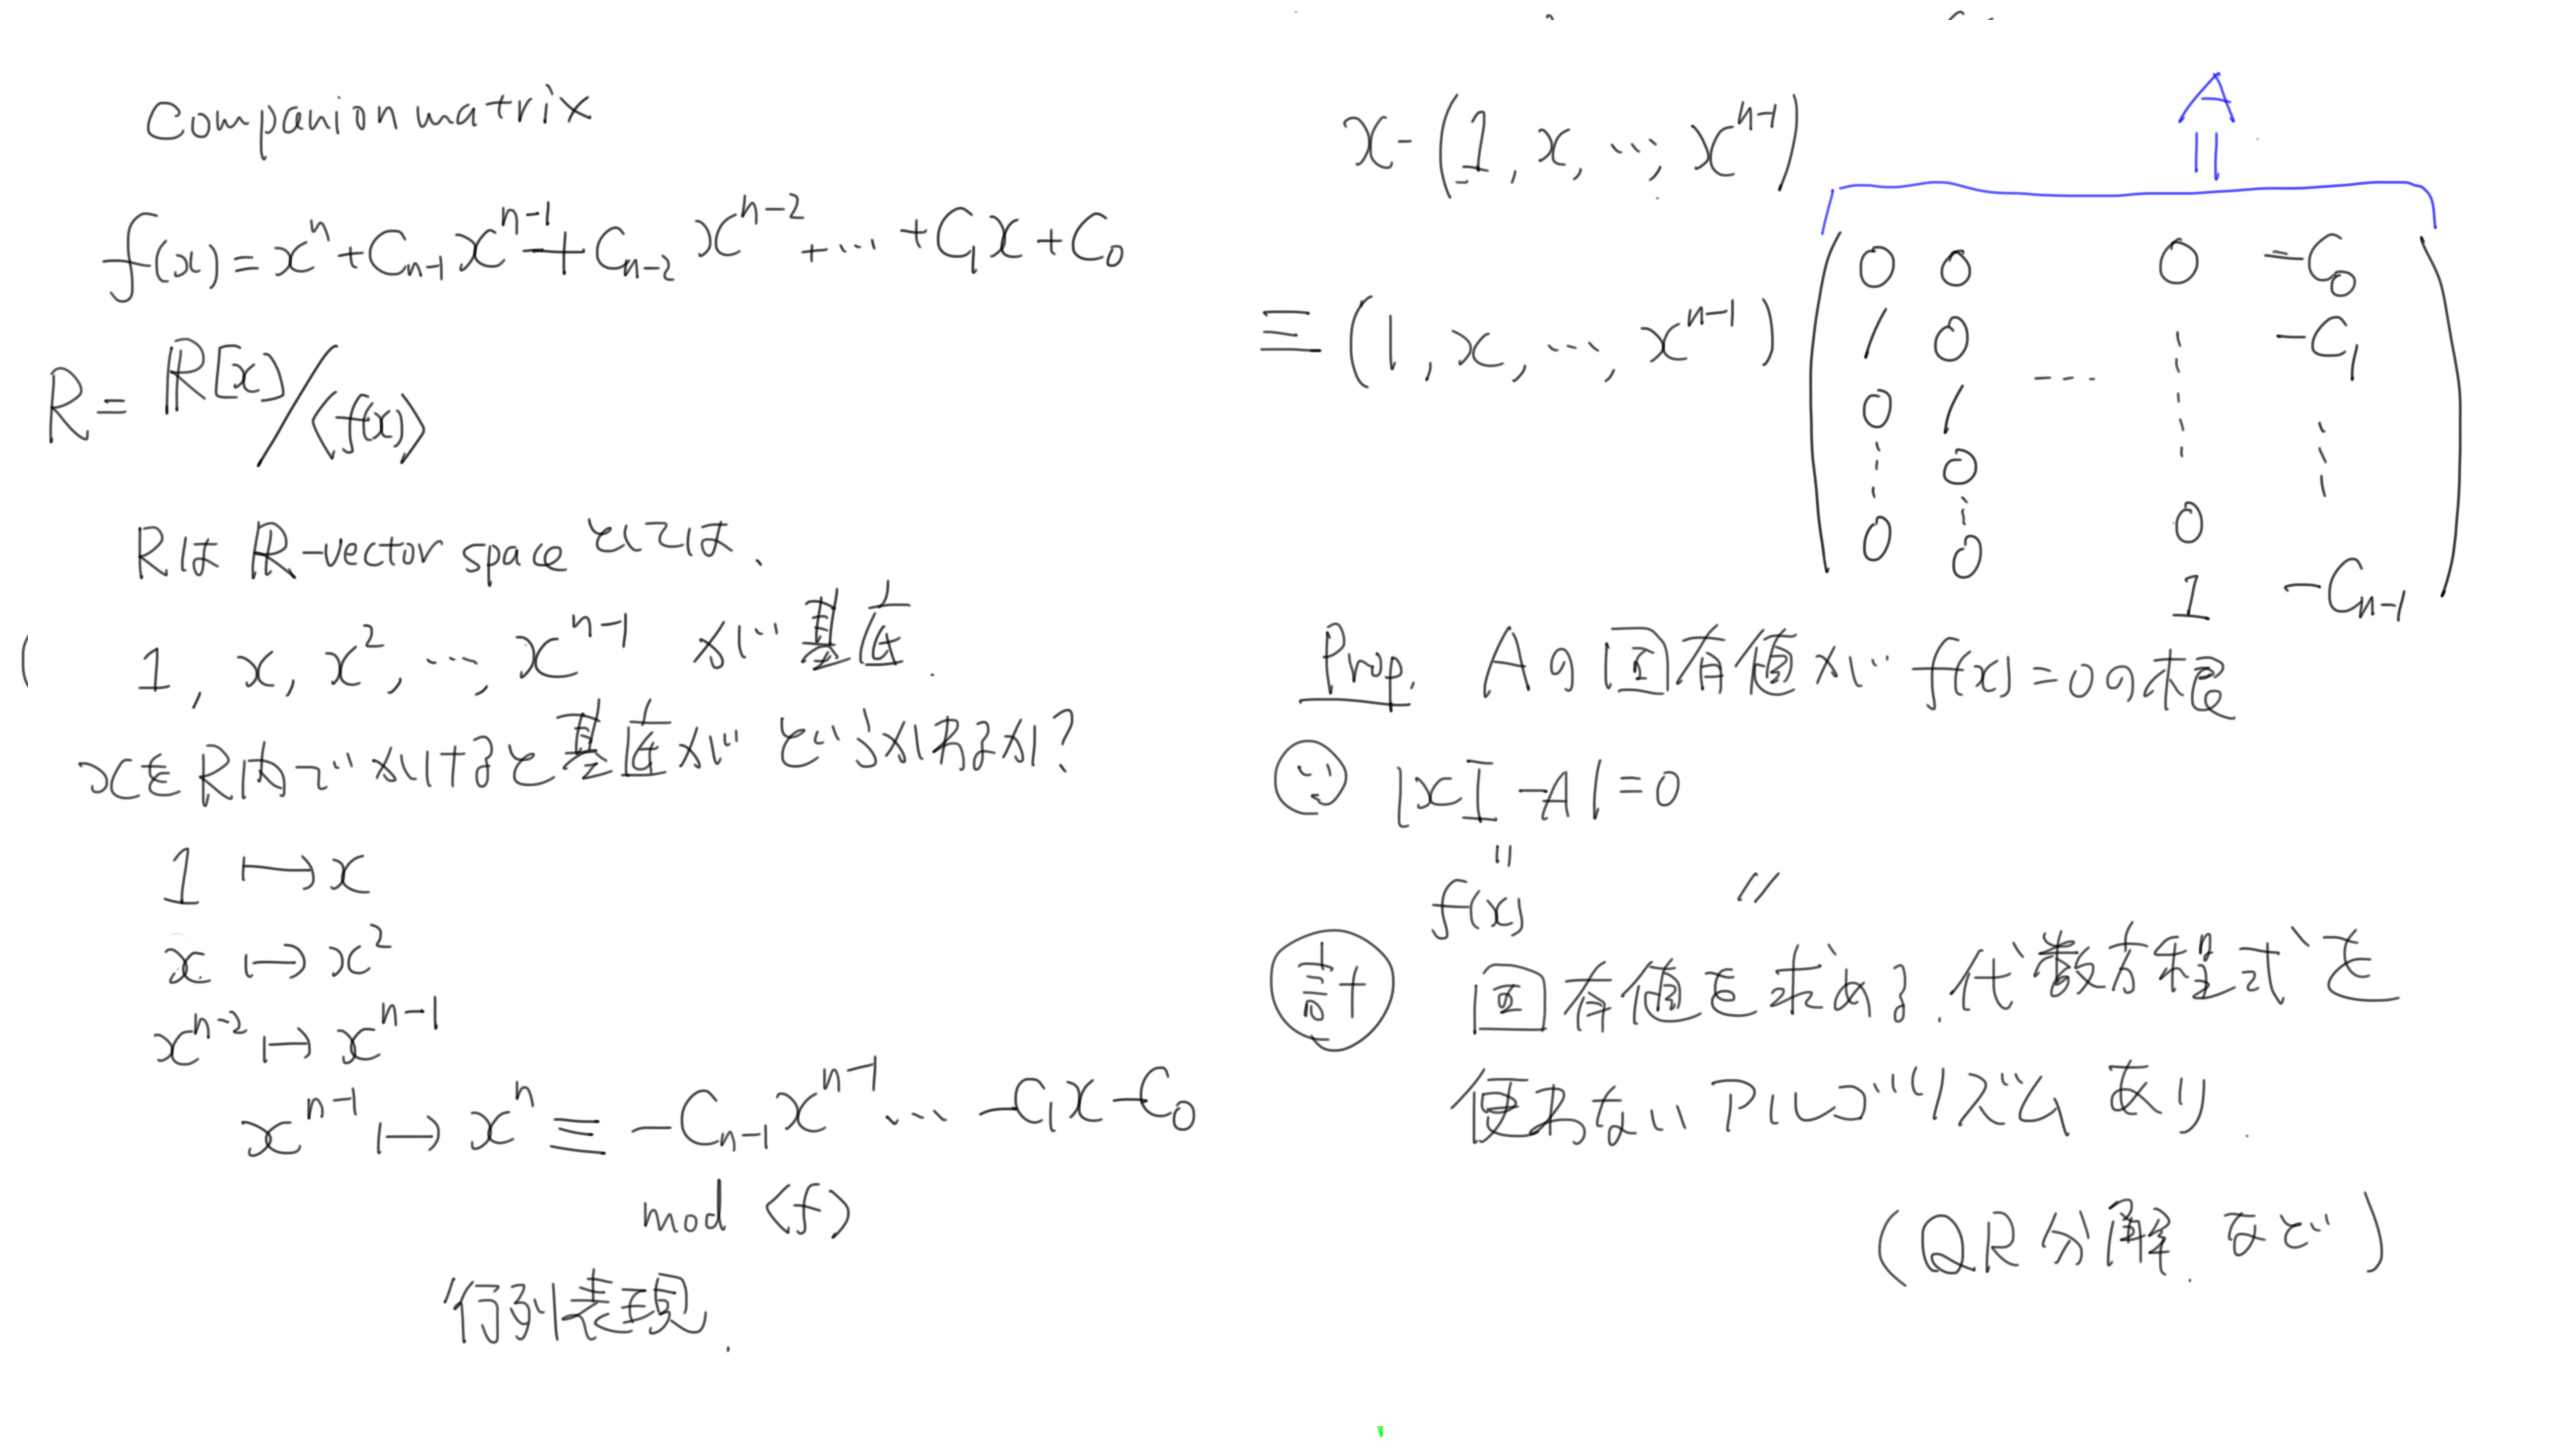 Companion matrix
f(x) = x^n + C_{n-1} x^{n-1} + C_{n-2} x^{n-2} + ... + C_1 x + C_0
R = ℝ[x]/⟨f(x)⟩
Rは ℝ-vector space としては、
1, x, x^2, ..., x^{n-1} が基底.
xをR内でかけると基底がどうかわるか?
1 ↦ x
x ↦ x^2
x^{n-2} ↦ x^{n-1}
x^{n-1} ↦ x^n ≡ -C_{n-1} x^{n-1} ... -C_1 x - C_0
mod ⟨f⟩
行列表現.
x・(1, x, ..., x^{n-1})
A
||
≡ (1, x, ..., x^{n-1})
0 0 0 -C_0
1 0 ⋮ -C_1
0 1 ... ⋮ ⋮
⋮ 0
0 0 0
1 -C_{n-1}
Prop. Aの固有値が f(x)=0の根
∵ |xI - A| = 0
||
f(x) //
計 固有値を求める. 代数方程式を
使わないアルゴリズムあり.
(QR分解. など)